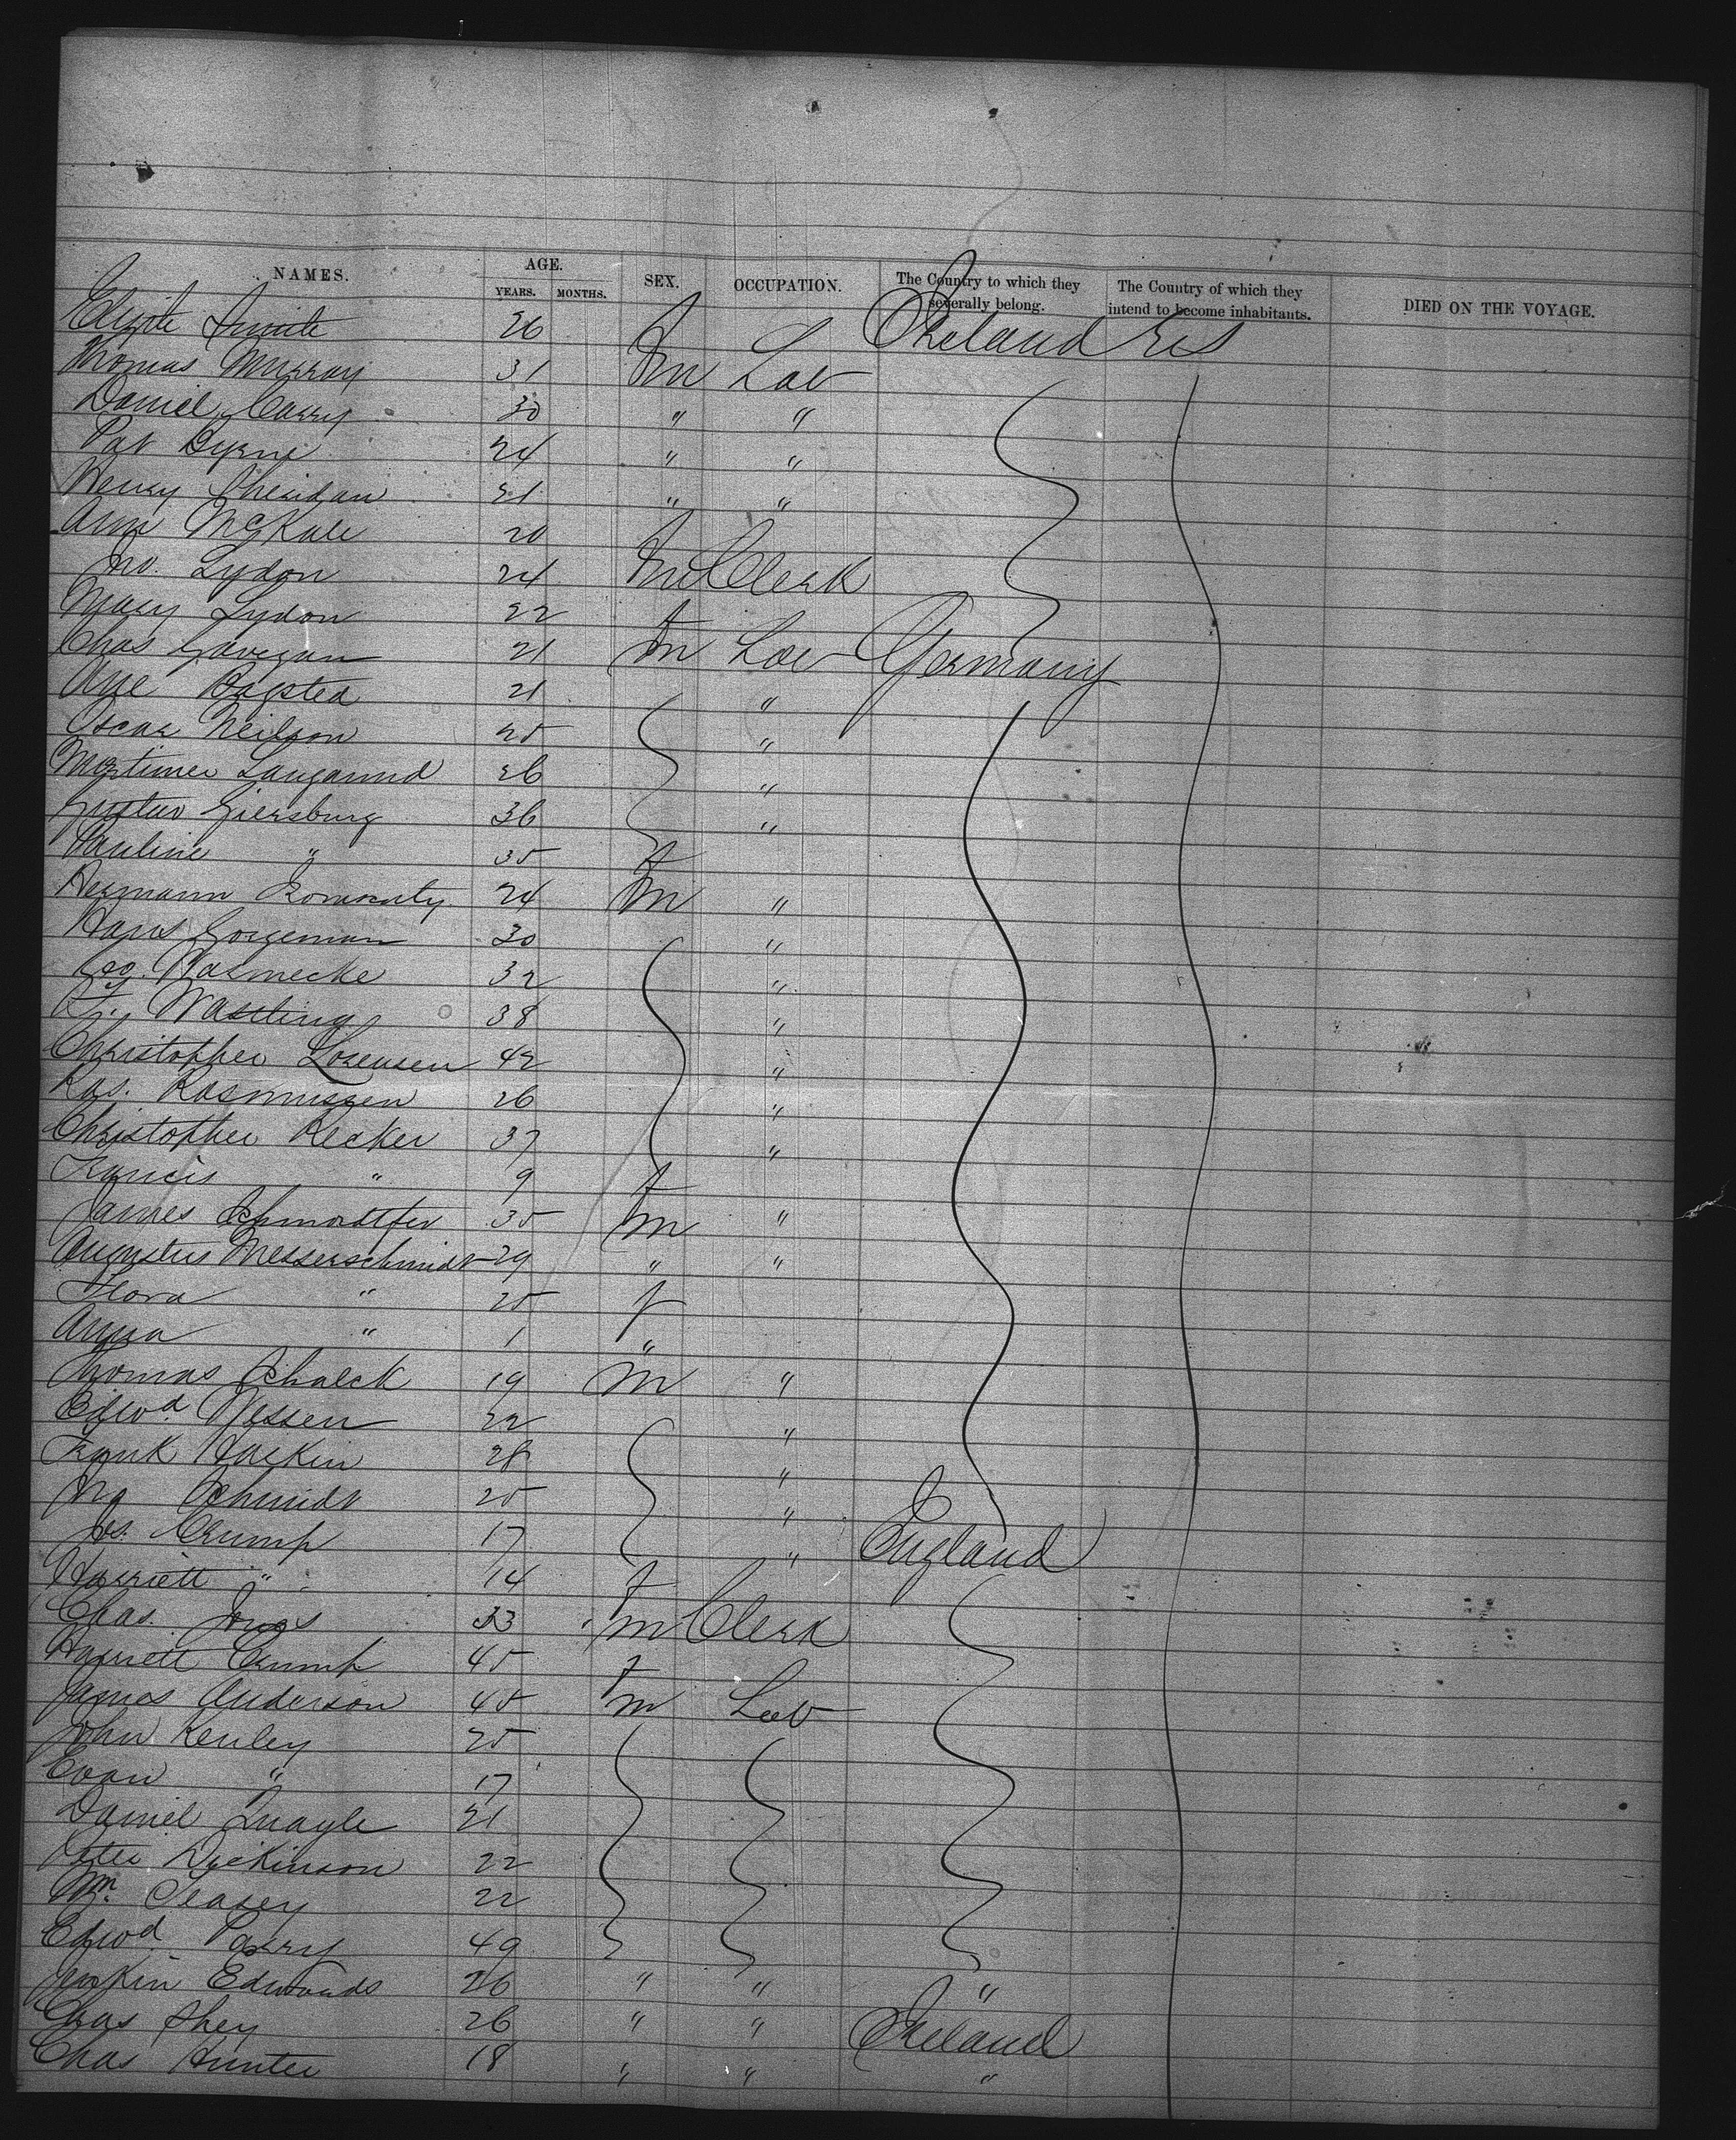 NAMES. AGE. SEX. OCCUPATION. The Country to which they severally belong. The Country of which they intend to become inhabitants. DIED ON THE VOYAGE.
YEARS. MONTHS.
26 f Ireland US
Thomas Murray 31 m Lab
Daniel Carry 30 " "
Pat Byrne 24 " "
Henry Sheridan 21 " "
Ann McKale 20 f
Jno. Lydon 24 m Clerk
Mary Lydon 22 f
Chas Gavegan 21 m Lab Germany
21 "
Oscar Neilson 25 "
Mortimer 26 "
Gustav Giersburg 36 "
Pauline " 35 f
Hermann 24 m "
Hans Gorgeman 30 "
Geo. Warnecke 32 "
Wastling 38 "
Christopher Lorensen 42 "
Ras. Rasmussen 26 "
Christopher Recker 37 "
Francis " 9 f
James 35 m "
Augustus Messerschmidt 29 " "
Flora " 25 f
Anna " 1 "
Thomas Schalck 19 m "
Edwd Wessen 22 "
Frank Harkin 28 "
Schmidt 25 "
Jos. Crump 17 " England
Harriett " 14 f
Chas. Jones 33 m Clerk
Harriett Crump 45 f
James Anderson 45 m Lab
John Kenley 25
Evan " 17
Daniel Quayle 21
Peter Dickinson 22
Wm. 22
Edwd Parry 49
Jenkin Edwards 26 " " "
Chas Shey 26 " " Ireland
Chas Hunter 18 " " "